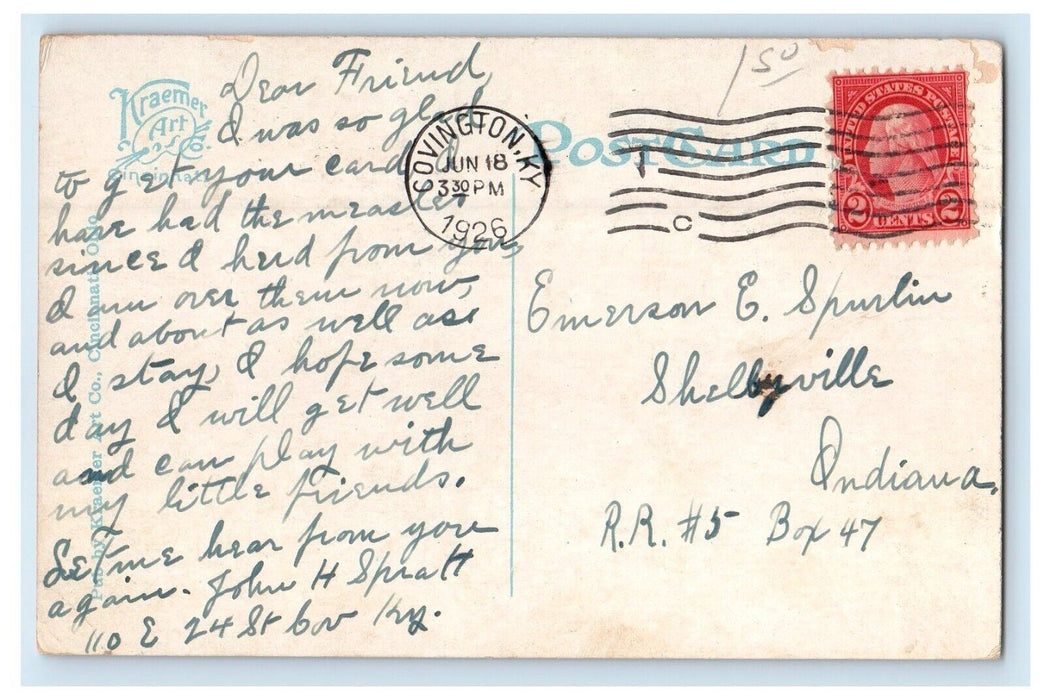 Dear Friend,
I was so glad
to get your card I
have had the measles
since I herd from you,
I am over them now,
and about as well as
I stay, I hope some
day I will get well
and can play with
my little friends.
Let me hear from you
again. John H Spratt
110 E 24 St Cov Ky.
Kraemer
Art
Co.
Cincinnati
Pub. by Kraemer Art Co., Cincinnati, Ohio
COVINGTON, KY
JUN 18
3 30 PM
1926
C
1 50
POST CARD
UNITED STATES POSTAGE
2 CENTS 2
Emerson E. Spurlin
Shelbyville
Indiana.
R.R. #5 Box 47